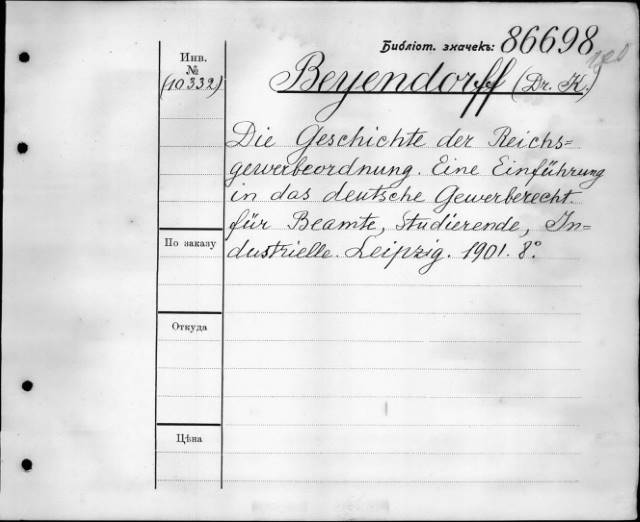 Библіот. значекъ: 86698
Инв.
№
(10332)
Beyendorff (Dr. K.)
Die Geschichte der Reichs=
gewerbeordnung. Eine Einführung
in das deutsche Gewerberecht
für Beamte, Studierende, In=
dustrielle. Leipzig. 1901. 8°.
По заказу
Откуда
Цѣна